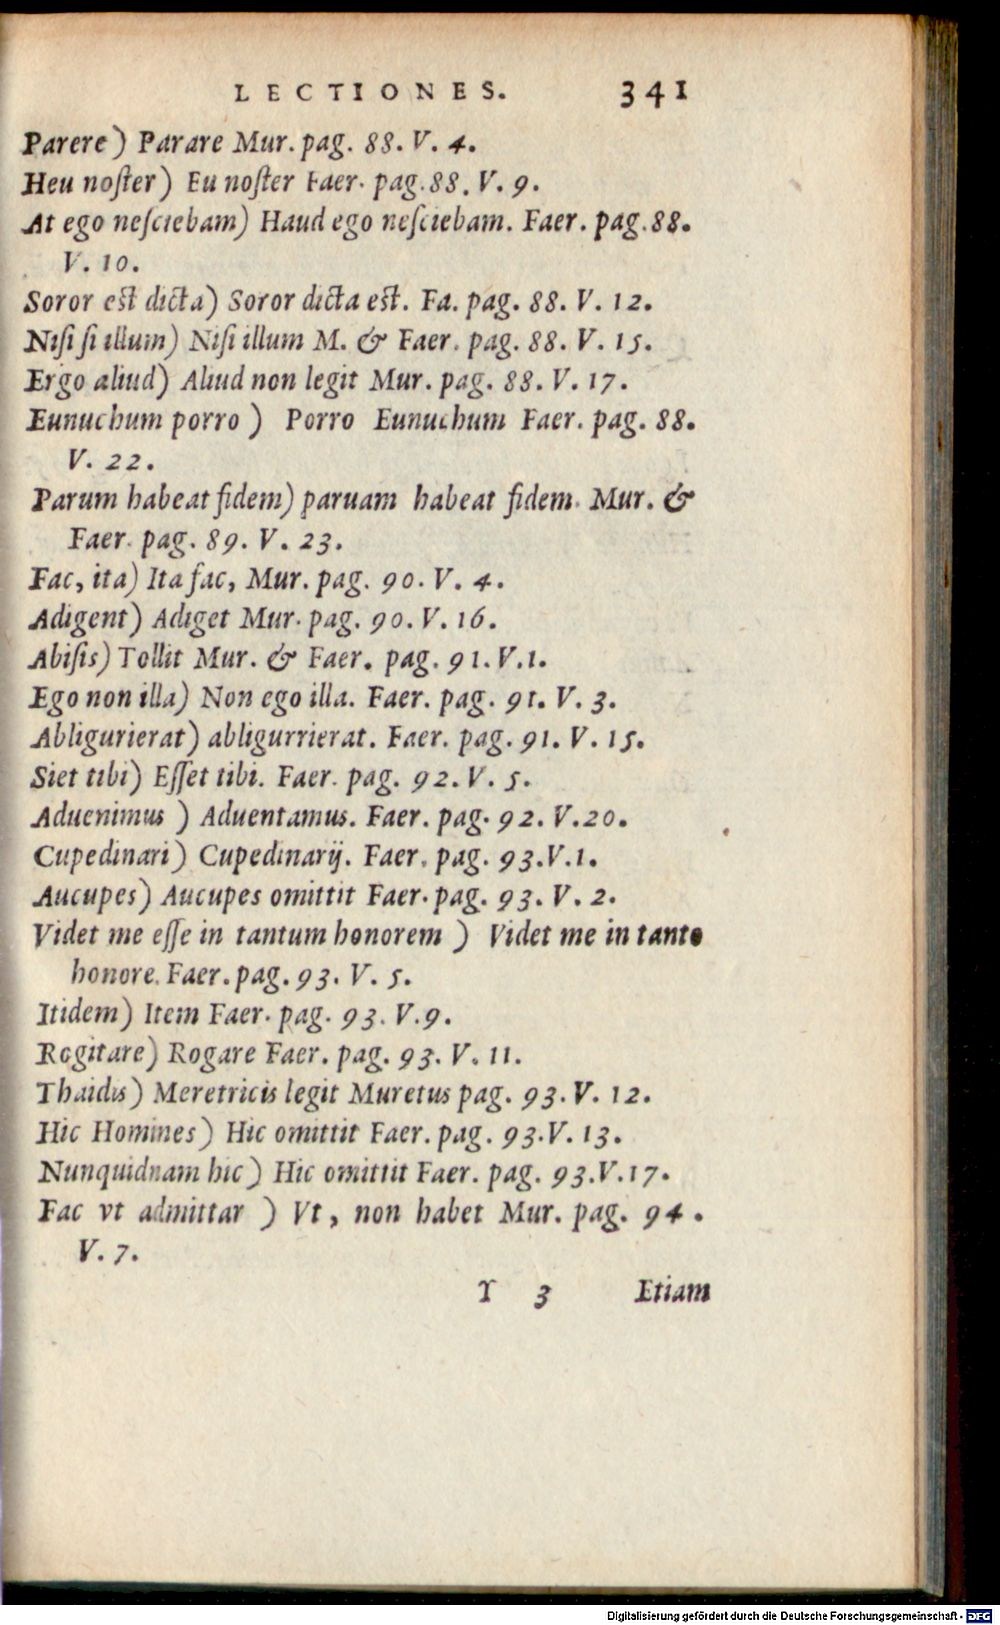 LECTIONES. 341
Parere) Parare Mur. pag. 88. V. 4.
Heu noſter) Eu noſter Faer. pag. 88. V. 9.
At ego neſciebam) Haud ego neſciebam. Faer. pag. 88.
V. 10.
Soror eſt dicta) Soror dicta eſt. Fa. pag. 88. V. 12.
Niſi ſi illum) Niſi illum M. & Faer. pag. 88. V. 15.
Ergo aliud) Aliud non legit Mur. pag. 88. V. 17.
Eunuchum porro ) Porro Eunuchum Faer. pag. 88.
V. 22.
Parum habeat fidem) paruam habeat fidem. Mur. &
Faer. pag. 89. V. 23.
Fac, ita) Ita fac, Mur. pag. 90. V. 4.
Adigent) Adiget Mur. pag. 90. V. 16.
Abiſis) Tollit Mur. & Faer. pag. 91. V. 1.
Ego non illa) Non ego illa. Faer. pag. 91. V. 3.
Abligurierat) abligurrierat. Faer. pag. 91. V. 15.
Siet tibi) Eſſet tibi. Faer. pag. 92. V. 5.
Aduenimus ) Aduentamus. Faer. pag. 92. V. 20.
Cupedinari) Cupedinarij. Faer. pag. 93. V. 1.
Aucupes) Aucupes omittit Faer. pag. 93. V. 2.
Videt me eſſe in tantum honorem ) Videt me in tanto
honore. Faer. pag. 93. V. 5.
Itidem) Item Faer. pag. 93. V. 9.
Rogitare) Rogare Faer. pag. 93. V. 11.
Thaidis) Meretricis legit Muretus pag. 93. V. 12.
Hic Homines) Hic omittit Faer. pag. 93. V. 13.
Nunquidnam hic) Hic omittit Faer. pag. 93. V. 17.
Fac vt admittar ) Vt, non habet Mur. pag. 94.
V. 7.
Y 3 Etiam
Digitalisierung gefördert durch die Deutsche Forschungsgemeinschaft - DFG